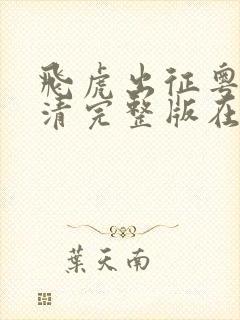 飛虎出征粵
清完整版在
葉天南